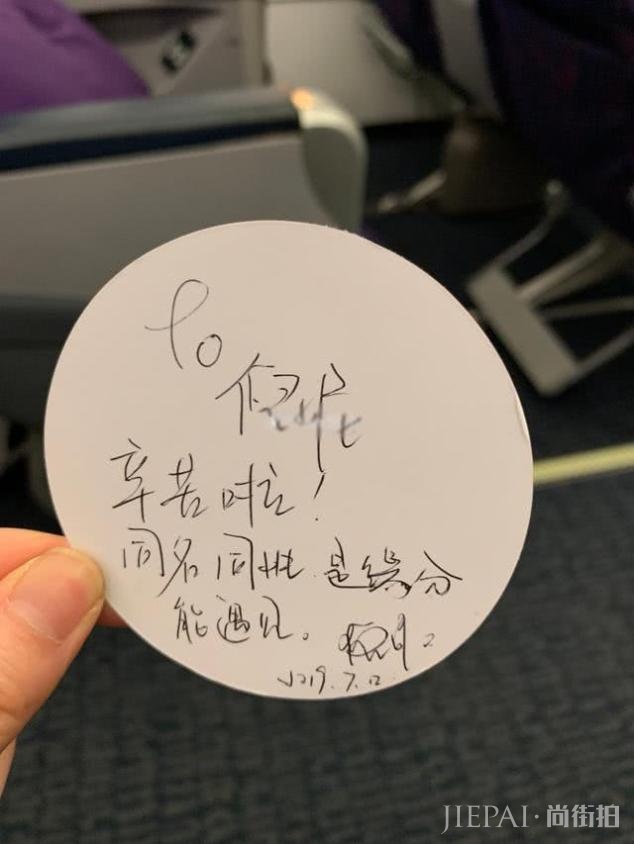 To
辛苦啦!
同名同姓.是缘分
能遇见。
2019.7.12
JIEPAI·尚街拍